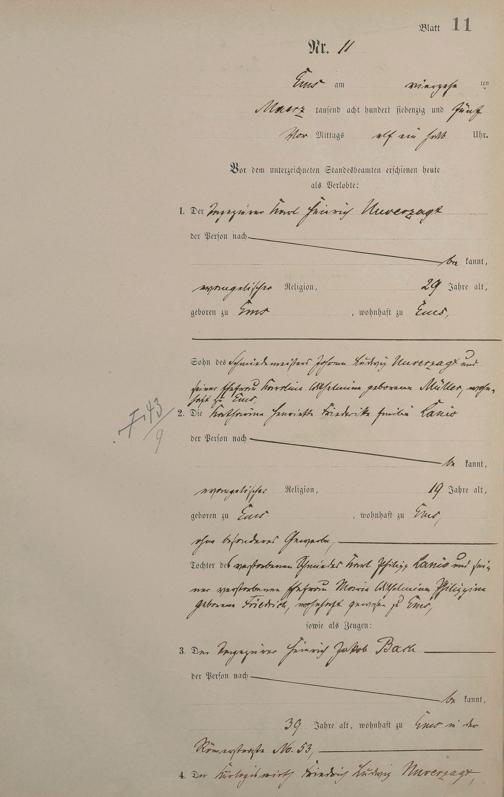 Blatt 11
Nr. 11
Ems am vierzehn ten
Maerz tausend acht hundert siebenzig und fünf
Vor Mittags elf ein halb Uhr.
Vor dem unterzeichneten Standesbeamten erschienen heute
als Verlobte:
1. Der Karl Heinrich Unverzagt
der Person nach
be kannt,
evangelischer Religion, 29 Jahre alt,
geboren zu Ems, wohnhaft zu Ems,
Sohn des Schmiedemeisters Johann Ludwig Unverzagt und
seiner Ehefrau Karoline Wilhelmine geborenen Müller, wohn-
haft zu Ems,
2. Die Katharine Henriette Friederike Emilie Canis
F. 43/9
der Person nach
be kannt,
evangelischer Religion, 19 Jahre alt,
geboren zu Ems, wohnhaft zu Ems,
ohne besonderes Gewerbe,
Tochter des verstorbenen Schmiedes Karl Philipp Canis und sei-
ner verstorbenen Ehefrau Marie Wilhelmine Philippine
geborene Friedrich, wohnhaft gewesen zu Ems,
sowie als Zeugen:
3. Der Heinrich Jakob Bach
der Person nach
be kannt,
39 Jahre alt, wohnhaft zu Ems in der
Römerstraße No. 53,
4. Der Friedrich Ludwig Unverzagt,